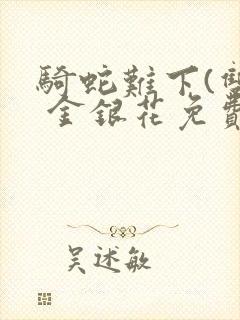 騎蛇難下(雙
金銀花免費
吴述敏